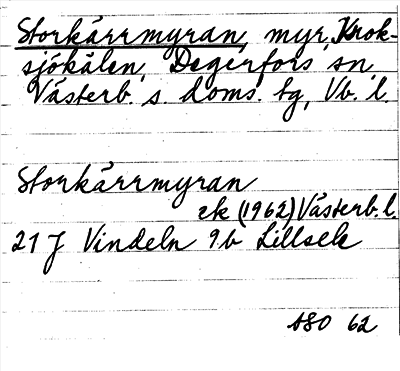 Storkärrmyran, myr, Krok-
sjökälen, Degerfors sn,
Västerb. s. doms. tg, Vb. l.
Storkärrmyran
ek (1962) Västerb. l.
21 J Vindeln 9b Lillsele
ASO 62